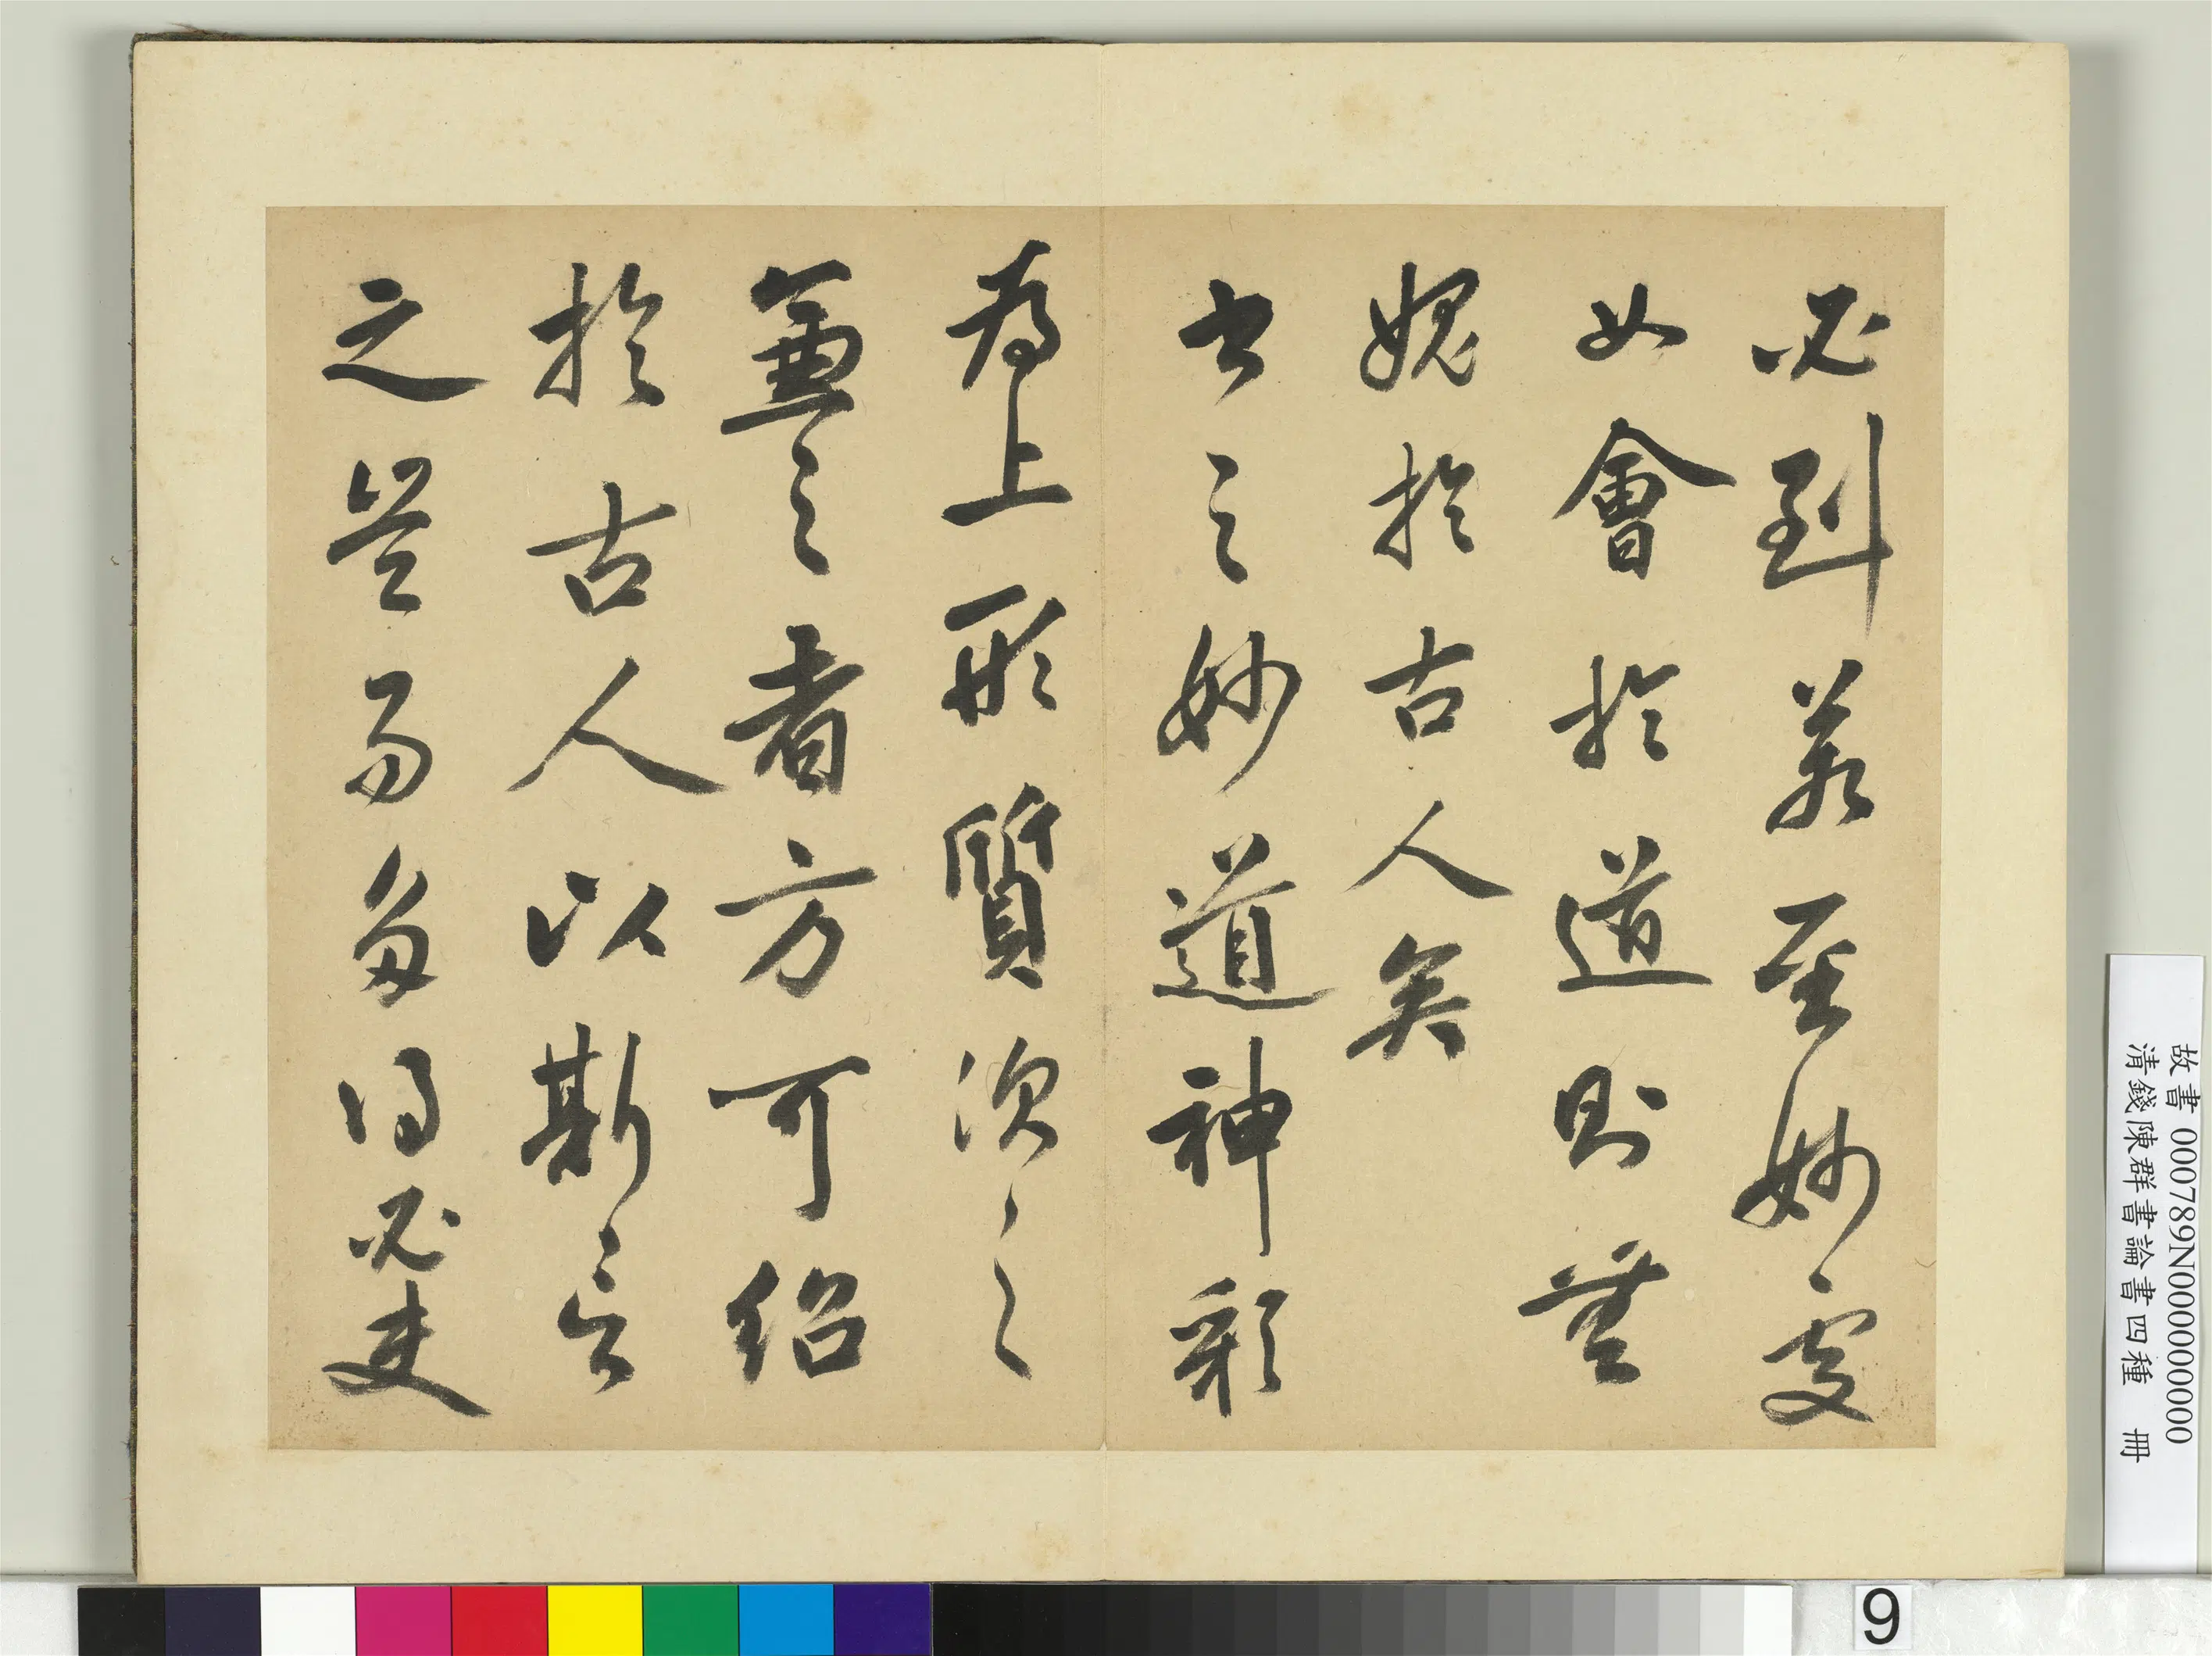 必到若至妙處
如會於道則無
媿於古人矣
書之妙道神彩
為上形質次之
兼之者方可紹
於古人以斯言
之豈易多得必使
故書 000789N000000000
清錢陳群書論書四種 冊
9